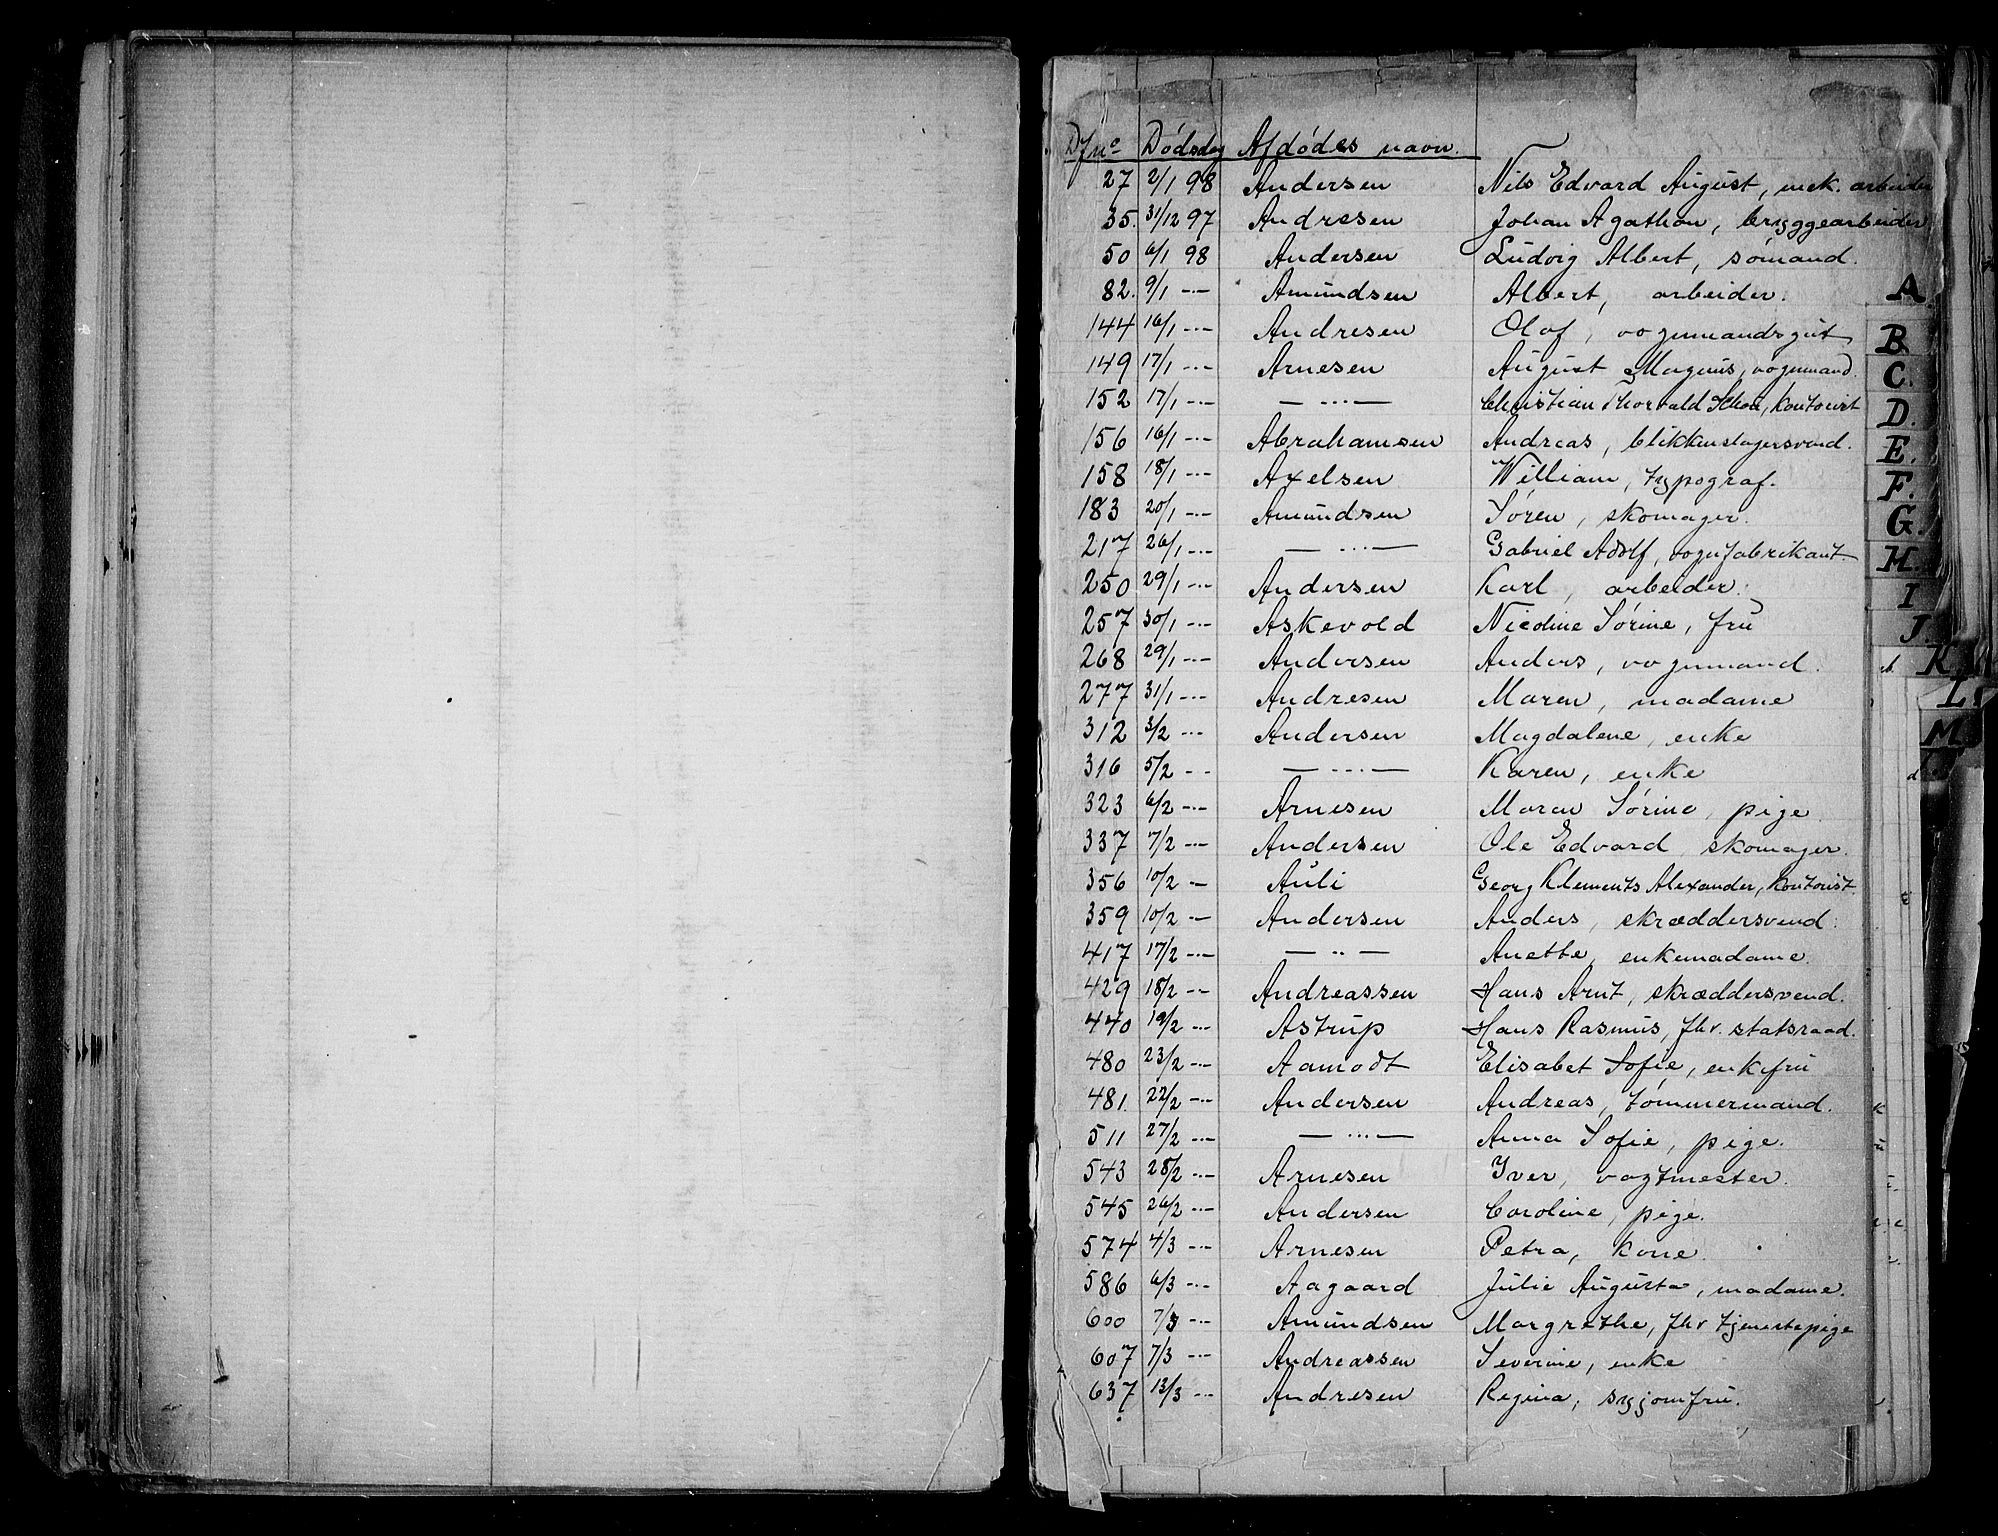 Dfn° Dødsdag Afdødes navn.
27 2/1 98 Andersen Nils Edvard August, enek. arbeider
35. 31/12 97 Andresen Johan Agathon, bryggearbeider
50 6/1 98 Andersen Ludvig Albert, sømand.
82. 9/1 -"- Amundsen Albert, arbeider.
144 16/1 -"- Andresen Olaf, vognmandsgut
149 17/1 -"- Arnesen August Magnus, vognmand.
152 17/1 -"- — " — Christian Thorvald Schou, kontorist
156 16/1 -"- Abrahamsen Andreas, blikkenslagersvend.
158 18/1 -"- Axelsen William, typograf.
183 20/1 -"- Amundsen Søren, skomager.
217 26/1 -"- — " — Gabriel Adolf, vognfabrikant.
250 29/1 -"- Andersen Karl, arbeider.
257 30/1 -"- Askevold Nicoline Sørine, fru
268 29/1 -"- Andersen Anders, vognmand.
277 31/1 -"- Andresen Maren, madame
312 3/2 -"- Andersen Magdalene, enke
316 5/2 - - — " — Karen, enke
323 6/2 -"- Arnesen Maren Sørine, pige
337 7/2 -"- Andersen Ole Edvard, skomager.
356 10/2 — Auli Georg Klements Alexander, kontorist.
359 10/2 — Andersen Anders, skræddersvend.
417 17/2 -"- — " — Anette, enkemadame.
429 18/2 -"- Andreassen Hans Arnt, skræddersvend.
440 19/2 -"- Astrup Hans Rasmus, fhv. statsraad.
480 23/2 -"- Aamodt Elisabet Sofie, enkefru
481. 22/2 -"- Andersen Andreas, tømmermand.
511 27/2 -"- — " — Anna Sofie, pige.
543 28/2 -"- Arnesen Iver, vagtmester.
545 26/2 -"- Andersen Caroline, pige.
574 4/3 -"- Arnesen Petra, kone.
586 6/3 -"- Aagaard Julie Augusta, madame.
600 7/3 -"- Amundsen Margrethe, fhv tjenestepige
607 7/3 -"- Andreassen Severine, enke
637 13/3 -"- Andresen Regina, syjomfru.
A.
B
C.
D.
E.
F.
G.
H.
I
J.
K
L
M